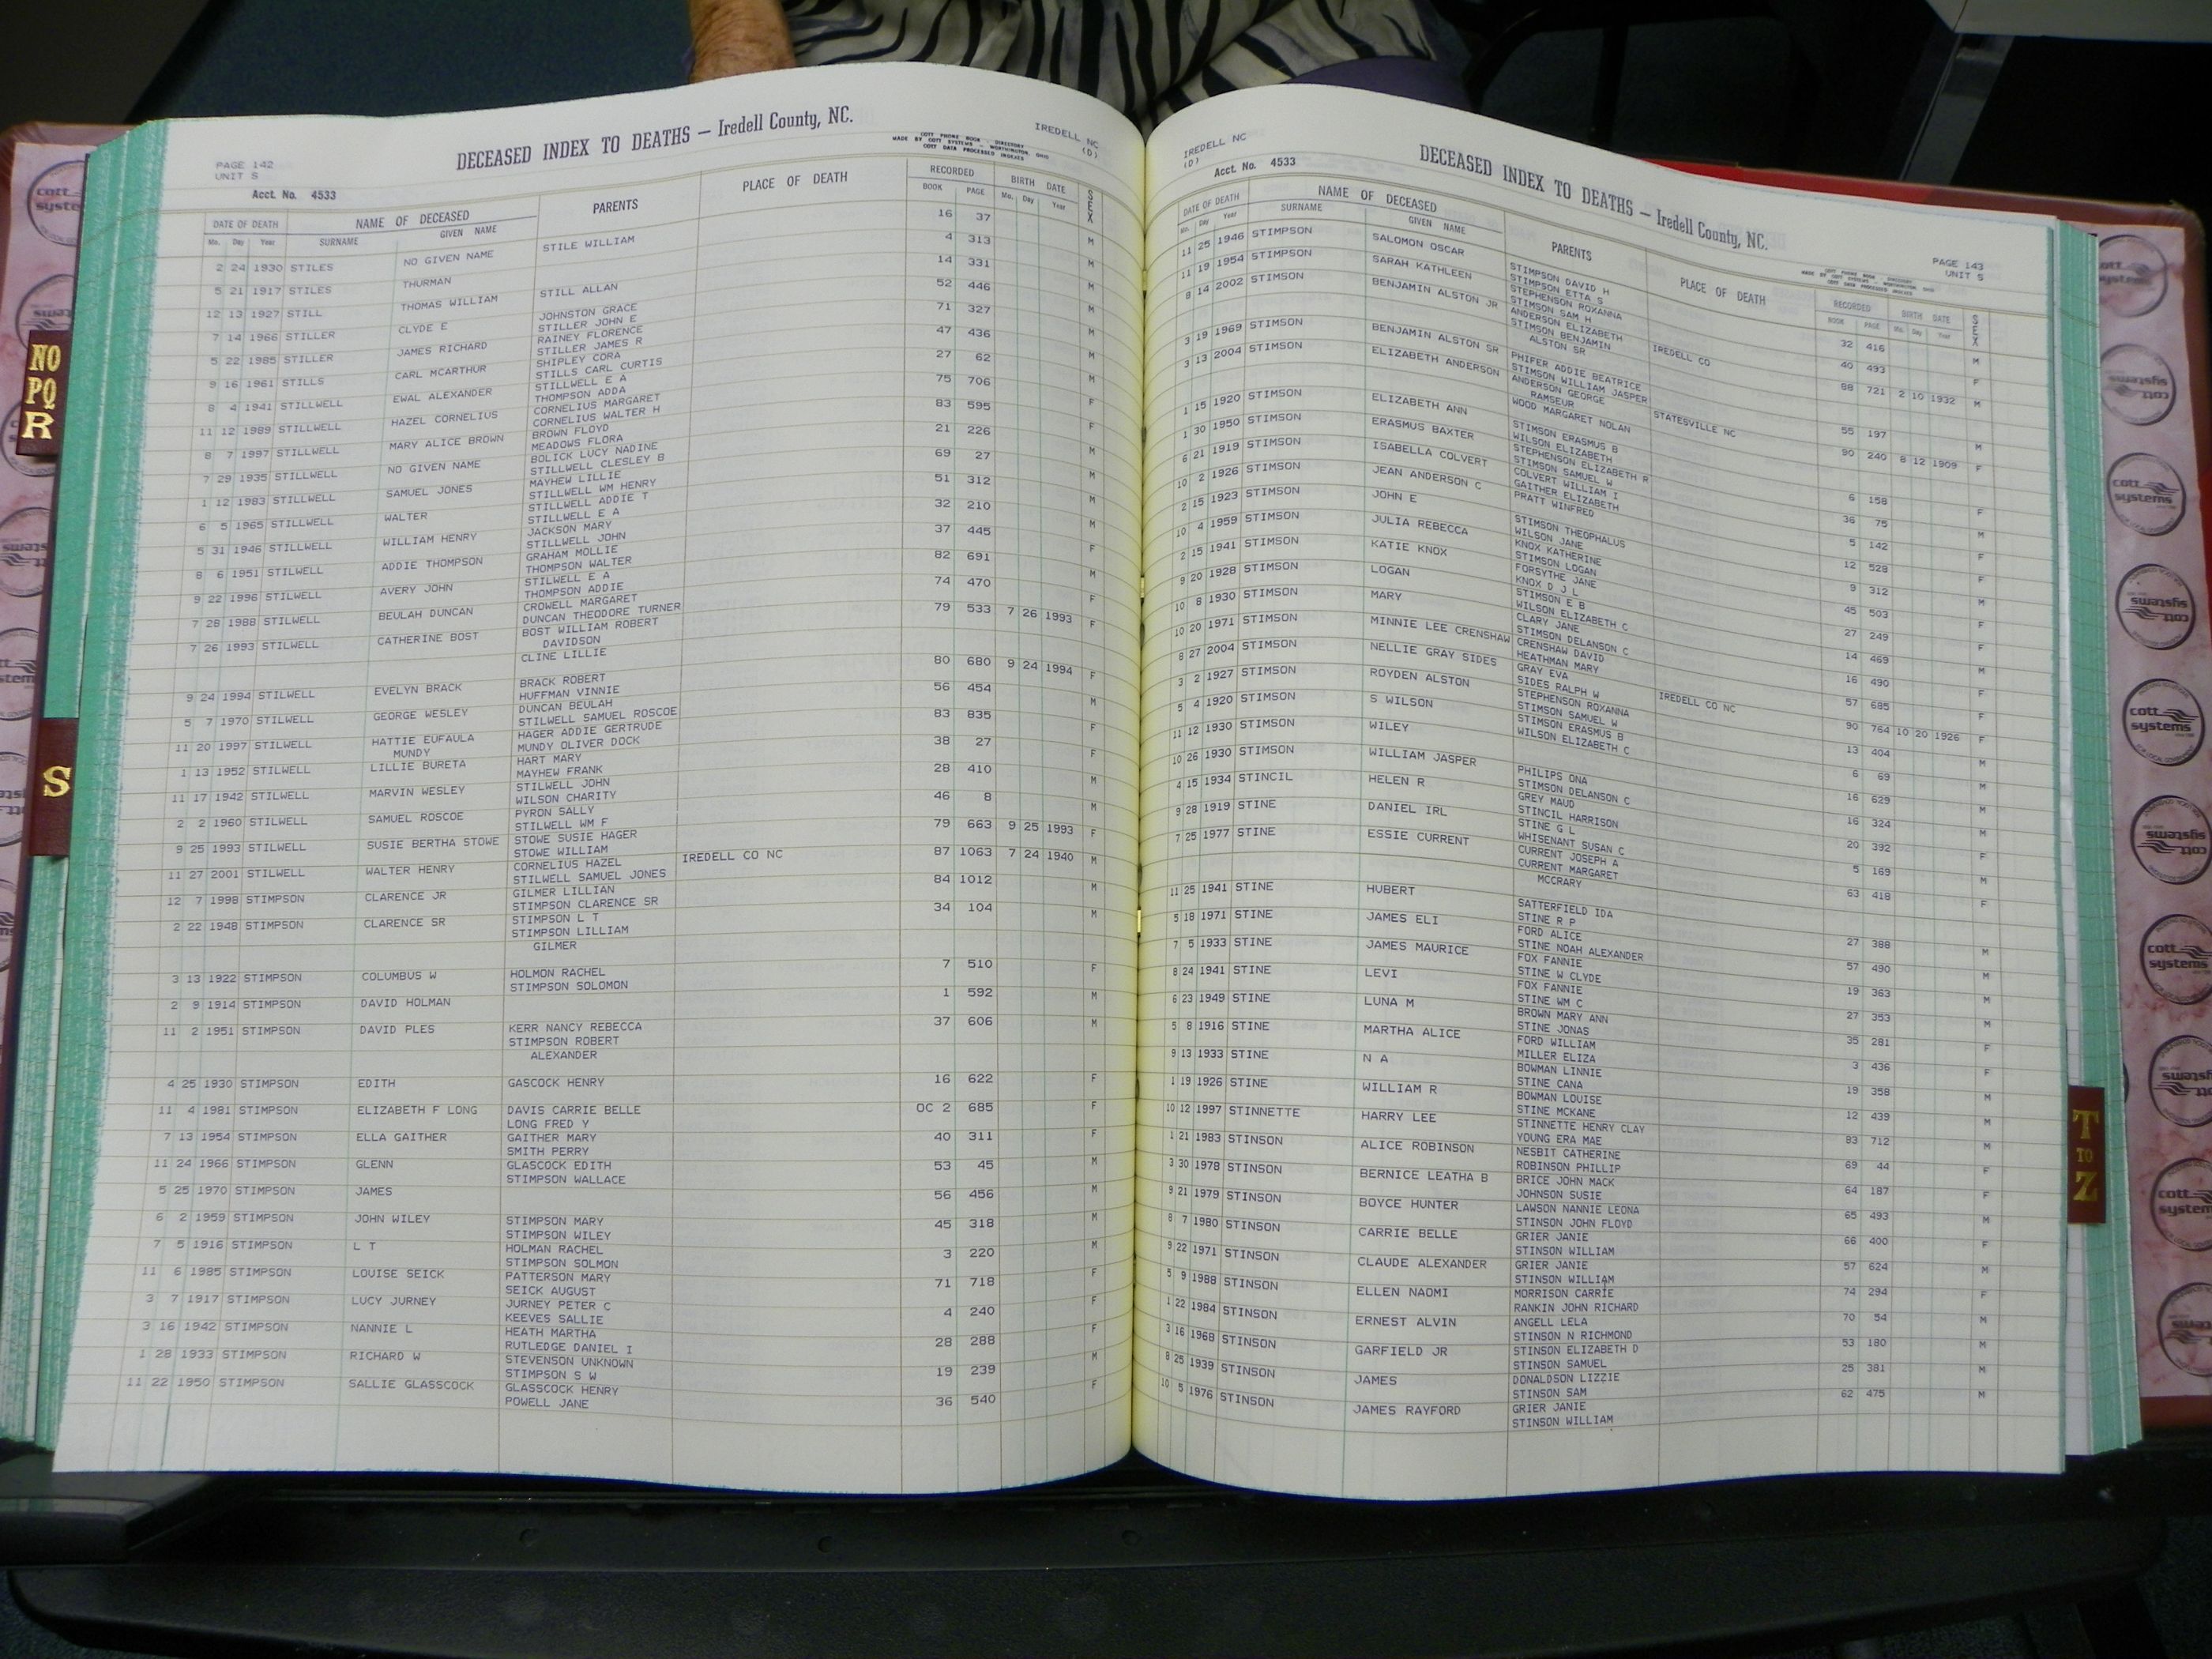 DECEASED INDEX TO DEATHS — Iredell County, NC.
IREDELL NC
(D)
COTT PHONE BOOK - DIRECTORY
MADE BY COTT SYSTEMS - WORTHINGTON, OHIO
COTT DATA PROCESSED INDEXES
PAGE 142
UNIT S
Acct. No. 4533
DATE OF DEATH NAME OF DECEASED PARENTS PLACE OF DEATH RECORDED BIRTH DATE SEX
Mo. Day Year SURNAME GIVEN NAME BOOK PAGE Mo. Day Year
2 24 1930 STILES NO GIVEN NAME STILE WILLIAM 16 37 M
5 21 1917 STILES THURMAN 4 313 M
12 13 1927 STILL THOMAS WILLIAM STILL ALLAN 14 331 M
7 14 1966 STILLER CLYDE E JOHNSTON GRACE 52 446 M
STILLER JOHN E
5 22 1985 STILLER JAMES RICHARD RAINEY FLORENCE 71 327 M
STILLER JAMES R
9 16 1961 STILLS CARL MCARTHUR SHIPLEY CORA 47 436 M
STILLS CARL CURTIS
8 4 1941 STILLWELL EWAL ALEXANDER STILLWELL E A 27 62 M
THOMPSON ADDA
11 12 1989 STILLWELL HAZEL CORNELIUS CORNELIUS MARGARET 75 706 F
CORNELIUS WALTER H
8 7 1997 STILLWELL MARY ALICE BROWN BROWN FLOYD 83 595 F
MEADOWS FLORA
7 29 1935 STILLWELL NO GIVEN NAME BOLICK LUCY NADINE 21 226 M
STILLWELL CLESLEY B
1 12 1983 STILLWELL SAMUEL JONES MAYHEW LILLIE 69 27 M
STILLWELL WM HENRY
6 5 1965 STILLWELL WALTER STILLWELL ADDIE T 51 312 M
STILLWELL E A
5 31 1946 STILLWELL WILLIAM HENRY JACKSON MARY 32 210 M
STILLWELL JOHN
8 6 1951 STILWELL ADDIE THOMPSON GRAHAM MOLLIE 37 445 F
THOMPSON WALTER
9 22 1996 STILWELL AVERY JOHN STILWELL E A 82 691 M
THOMPSON ADDIE
7 28 1988 STILWELL BEULAH DUNCAN CROWELL MARGARET 74 470 F
DUNCAN THEODORE TURNER
7 26 1993 STILWELL CATHERINE BOST BOST WILLIAM ROBERT 79 533 7 26 1993 F
DAVIDSON
CLINE LILLIE
9 24 1994 STILWELL EVELYN BRACK BRACK ROBERT 80 680 9 24 1994 F
HUFFMAN VINNIE
5 7 1970 STILWELL GEORGE WESLEY DUNCAN BEULAH 56 454 M
STILWELL SAMUEL ROSCOE
11 20 1997 STILWELL HATTIE EUFAULA HAGER ADDIE GERTRUDE 83 835 F
MUNDY MUNDY OLIVER DOCK
1 13 1952 STILWELL LILLIE BURETA HART MARY 38 27 F
MAYHEW FRANK
11 17 1942 STILWELL MARVIN WESLEY STILWELL JOHN 28 410 M
WILSON CHARITY
2 2 1960 STILWELL SAMUEL ROSCOE PYRON SALLY 46 8 M
STILWELL WM F
9 25 1993 STILWELL SUSIE BERTHA STOWE STOWE SUSIE HAGER 79 663 9 25 1993 F
STOWE WILLIAM
11 27 2001 STILWELL WALTER HENRY CORNELIUS HAZEL IREDELL CO NC 87 1063 7 24 1940 M
STILWELL SAMUEL JONES
12 7 1998 STIMPSON CLARENCE JR GILMER LILLIAN 84 1012 M
STIMPSON CLARENCE SR
2 22 1948 STIMPSON CLARENCE SR STIMPSON L T 34 104 M
STIMPSON LILLIAM
GILMER
3 13 1922 STIMPSON COLUMBUS W HOLMON RACHEL 7 510 F
STIMPSON SOLOMON
2 9 1914 STIMPSON DAVID HOLMAN 1 592 M
11 2 1951 STIMPSON DAVID PLES KERR NANCY REBECCA 37 606 M
STIMPSON ROBERT
ALEXANDER
4 25 1930 STIMPSON EDITH GASCOCK HENRY 16 622 F
11 4 1981 STIMPSON ELIZABETH F LONG DAVIS CARRIE BELLE OC 2 685 F
LONG FRED Y
7 13 1954 STIMPSON ELLA GAITHER GAITHER MARY 40 311 F
SMITH PERRY
11 24 1966 STIMPSON GLENN GLASCOCK EDITH 53 45 M
STIMPSON WALLACE
5 25 1970 STIMPSON JAMES 56 456 M
6 2 1959 STIMPSON JOHN WILEY STIMPSON MARY 45 318 M
STIMPSON WILEY
7 5 1916 STIMPSON L T HOLMAN RACHEL 3 220 M
STIMPSON SOLMON
11 6 1985 STIMPSON LOUISE SEICK PATTERSON MARY 71 718 F
SEICK AUGUST
3 7 1917 STIMPSON LUCY JURNEY JURNEY PETER C 4 240 F
KEEVES SALLIE
3 16 1942 STIMPSON NANNIE L HEATH MARTHA 28 288 F
RUTLEDGE DANIEL I
1 28 1933 STIMPSON RICHARD W STEVENSON UNKNOWN 19 239 M
STIMPSON S W
11 22 1950 STIMPSON SALLIE GLASSCOCK GLASSCOCK HENRY 36 540 F
POWELL JANE
DECEASED INDEX TO DEATHS — Iredell County, NC.
IREDELL NC
(D)
PAGE 143
UNIT S
Acct. No. 4533
COTT PHONE BOOK - DIRECTORY
MADE BY COTT SYSTEMS - WORTHINGTON, OHIO
COTT DATA PROCESSED INDEXES
DATE OF DEATH NAME OF DECEASED PARENTS PLACE OF DEATH RECORDED BIRTH DATE SEX
Mo. Day Year SURNAME GIVEN NAME BOOK PAGE Mo. Day Year
11 25 1946 STIMPSON SALOMON OSCAR STIMPSON DAVID H 32 416 M
STIMPSON ETTA S
11 19 1954 STIMPSON SARAH KATHLEEN STEPHENSON ROXANNA 40 493 F
STIMSON SAM H
8 14 2002 STIMSON BENJAMIN ALSTON JR ANDERSON ELIZABETH IREDELL CO 88 721 2 10 1932 M
STIMSON BENJAMIN
ALSTON SR
3 19 1969 STIMSON BENJAMIN ALSTON SR PHIFER ADDIE BEATRICE 55 197 M
STIMSON WILLIAM JASPER
3 13 2004 STIMSON ELIZABETH ANDERSON ANDERSON GEORGE STATESVILLE NC 90 240 8 12 1909 F
RAMSEUR
WOOD MARGARET NOLAN
1 15 1920 STIMSON ELIZABETH ANN STIMSON ERASMUS B 6 158 F
WILSON ELIZABETH
1 30 1950 STIMSON ERASMUS BAXTER STEPHENSON ELIZABETH R 36 75 M
STIMSON SAMUEL W
6 21 1919 STIMSON ISABELLA COLVERT COLVERT WILLIAM I 5 142 F
GAITHER ELIZABETH
10 2 1926 STIMSON JEAN ANDERSON C PRATT WINFRED 12 528 F
2 15 1923 STIMSON JOHN E STIMSON THEOPHALUS 9 312 M
WILSON JANE
10 4 1959 STIMSON JULIA REBECCA KNOX KATHERINE 45 503 F
STIMSON LOGAN
2 15 1941 STIMSON KATIE KNOX FORSYTHE JANE 27 249 F
KNOX D J L
9 20 1928 STIMSON LOGAN STIMSON E B 14 469 M
WILSON ELIZABETH C
10 8 1930 STIMSON MARY CLARY JANE 16 490 F
STIMSON DELANSON C
10 20 1971 STIMSON MINNIE LEE CRENSHAW CRENSHAW DAVID 57 685 F
HEATHMAN MARY
8 27 2004 STIMSON NELLIE GRAY SIDES GRAY EVA IREDELL CO NC 90 764 10 20 1926 F
SIDES RALPH W
3 2 1927 STIMSON ROYDEN ALSTON STEPHENSON ROXANNA 13 404 M
STIMSON SAMUEL W
5 4 1920 STIMSON S WILSON STIMSON ERASMUS B 6 69 M
WILSON ELIZABETH C
11 12 1930 STIMSON WILEY 16 629 M
10 26 1930 STIMSON WILLIAM JASPER PHILIPS ONA 16 324 M
STIMSON DELANSON C
4 15 1934 STINCIL HELEN R GREY MAUD 20 392 F
STINCIL HARRISON
9 28 1919 STINE DANIEL IRL STINE G L 5 169 M
WHISENANT SUSAN C
7 25 1977 STINE ESSIE CURRENT CURRENT JOSEPH A 63 418 F
CURRENT MARGARET
MCCRARY
11 25 1941 STINE HUBERT SATTERFIELD IDA 27 388 M
STINE R P
5 18 1971 STINE JAMES ELI FORD ALICE 57 490 M
STINE NOAH ALEXANDER
7 5 1933 STINE JAMES MAURICE FOX FANNIE 19 363 M
STINE W CLYDE
8 24 1941 STINE LEVI FOX FANNIE 27 353 M
STINE WM C
6 23 1949 STINE LUNA M BROWN MARY ANN 35 281 F
STINE JONAS
5 8 1916 STINE MARTHA ALICE FORD WILLIAM 3 436 F
MILLER ELIZA
9 13 1933 STINE N A BOWMAN LINNIE 19 358 M
STINE CANA
1 19 1926 STINE WILLIAM R BOWMAN LOUISE 12 439 M
STINE MCKANE
10 12 1997 STINNETTE HARRY LEE STINNETTE HENRY CLAY 83 712 M
YOUNG ERA MAE
1 21 1983 STINSON ALICE ROBINSON NESBIT CATHERINE 69 44 F
ROBINSON PHILLIP
3 30 1978 STINSON BERNICE LEATHA B BRICE JOHN MACK 64 187 F
JOHNSON SUSIE
9 21 1979 STINSON BOYCE HUNTER LAWSON NANNIE LEONA 65 493 M
STINSON JOHN FLOYD
8 7 1980 STINSON CARRIE BELLE GRIER JANIE 66 400 F
STINSON WILLIAM
9 22 1971 STINSON CLAUDE ALEXANDER GRIER JANIE 57 624 M
STINSON WILLIAM
5 9 1988 STINSON ELLEN NAOMI MORRISON CARRIE 74 294 F
RANKIN JOHN RICHARD
1 22 1984 STINSON ERNEST ALVIN ANGELL LELA 70 54 M
STINSON N RICHMOND
3 16 1968 STINSON GARFIELD JR STINSON ELIZABETH D 53 180 M
STINSON SAMUEL
8 25 1939 STINSON JAMES DONALDSON LIZZIE 25 381 M
STINSON SAM
10 5 1976 STINSON JAMES RAYFORD GRIER JANIE 62 475 M
STINSON WILLIAM
NO
PQ
R
S
T
TO
Z
cott
systems